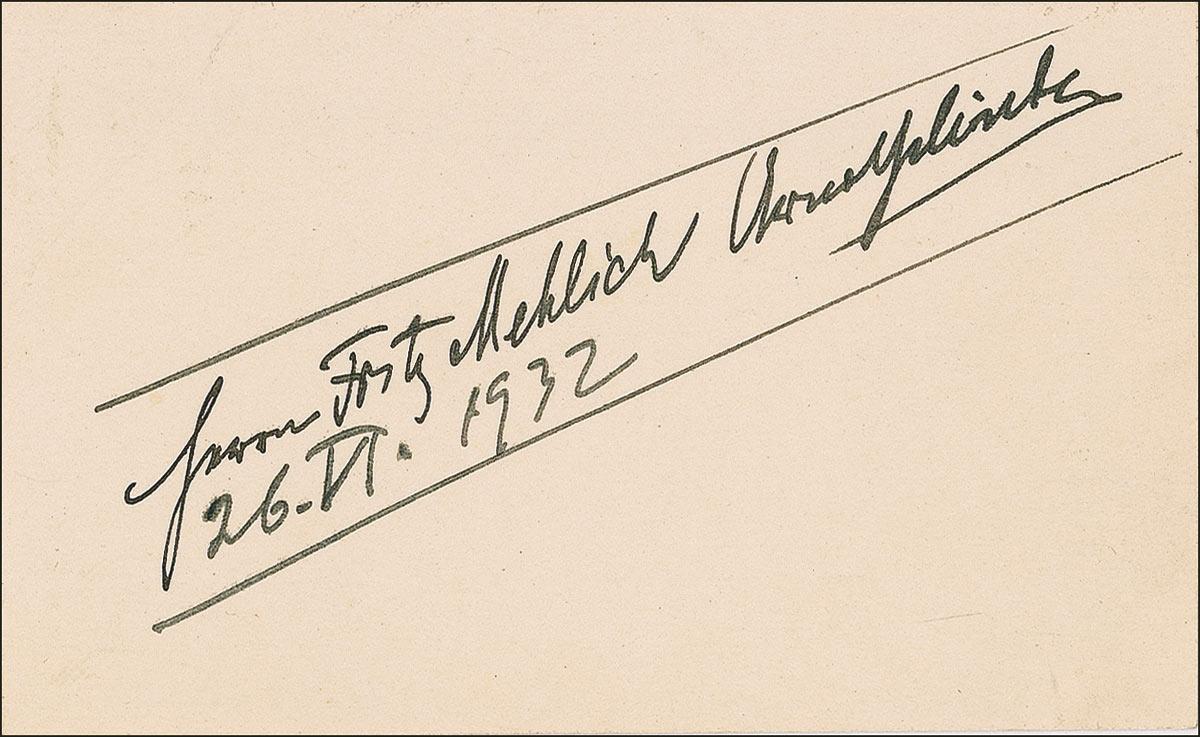 Herrn Fritz Mehlich Arnold
26.VI. 1932